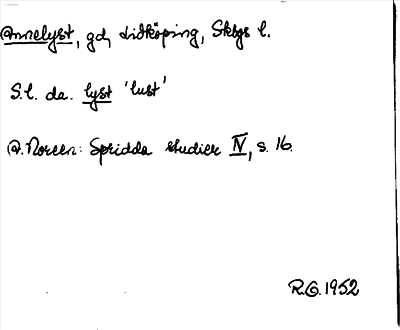 Annelyst, gd, Lidköping, Skbgs l.
S.l. da. lyst 'lust'
A. Noreen: Spridda studier IV, s. 16.
R.G. 1952